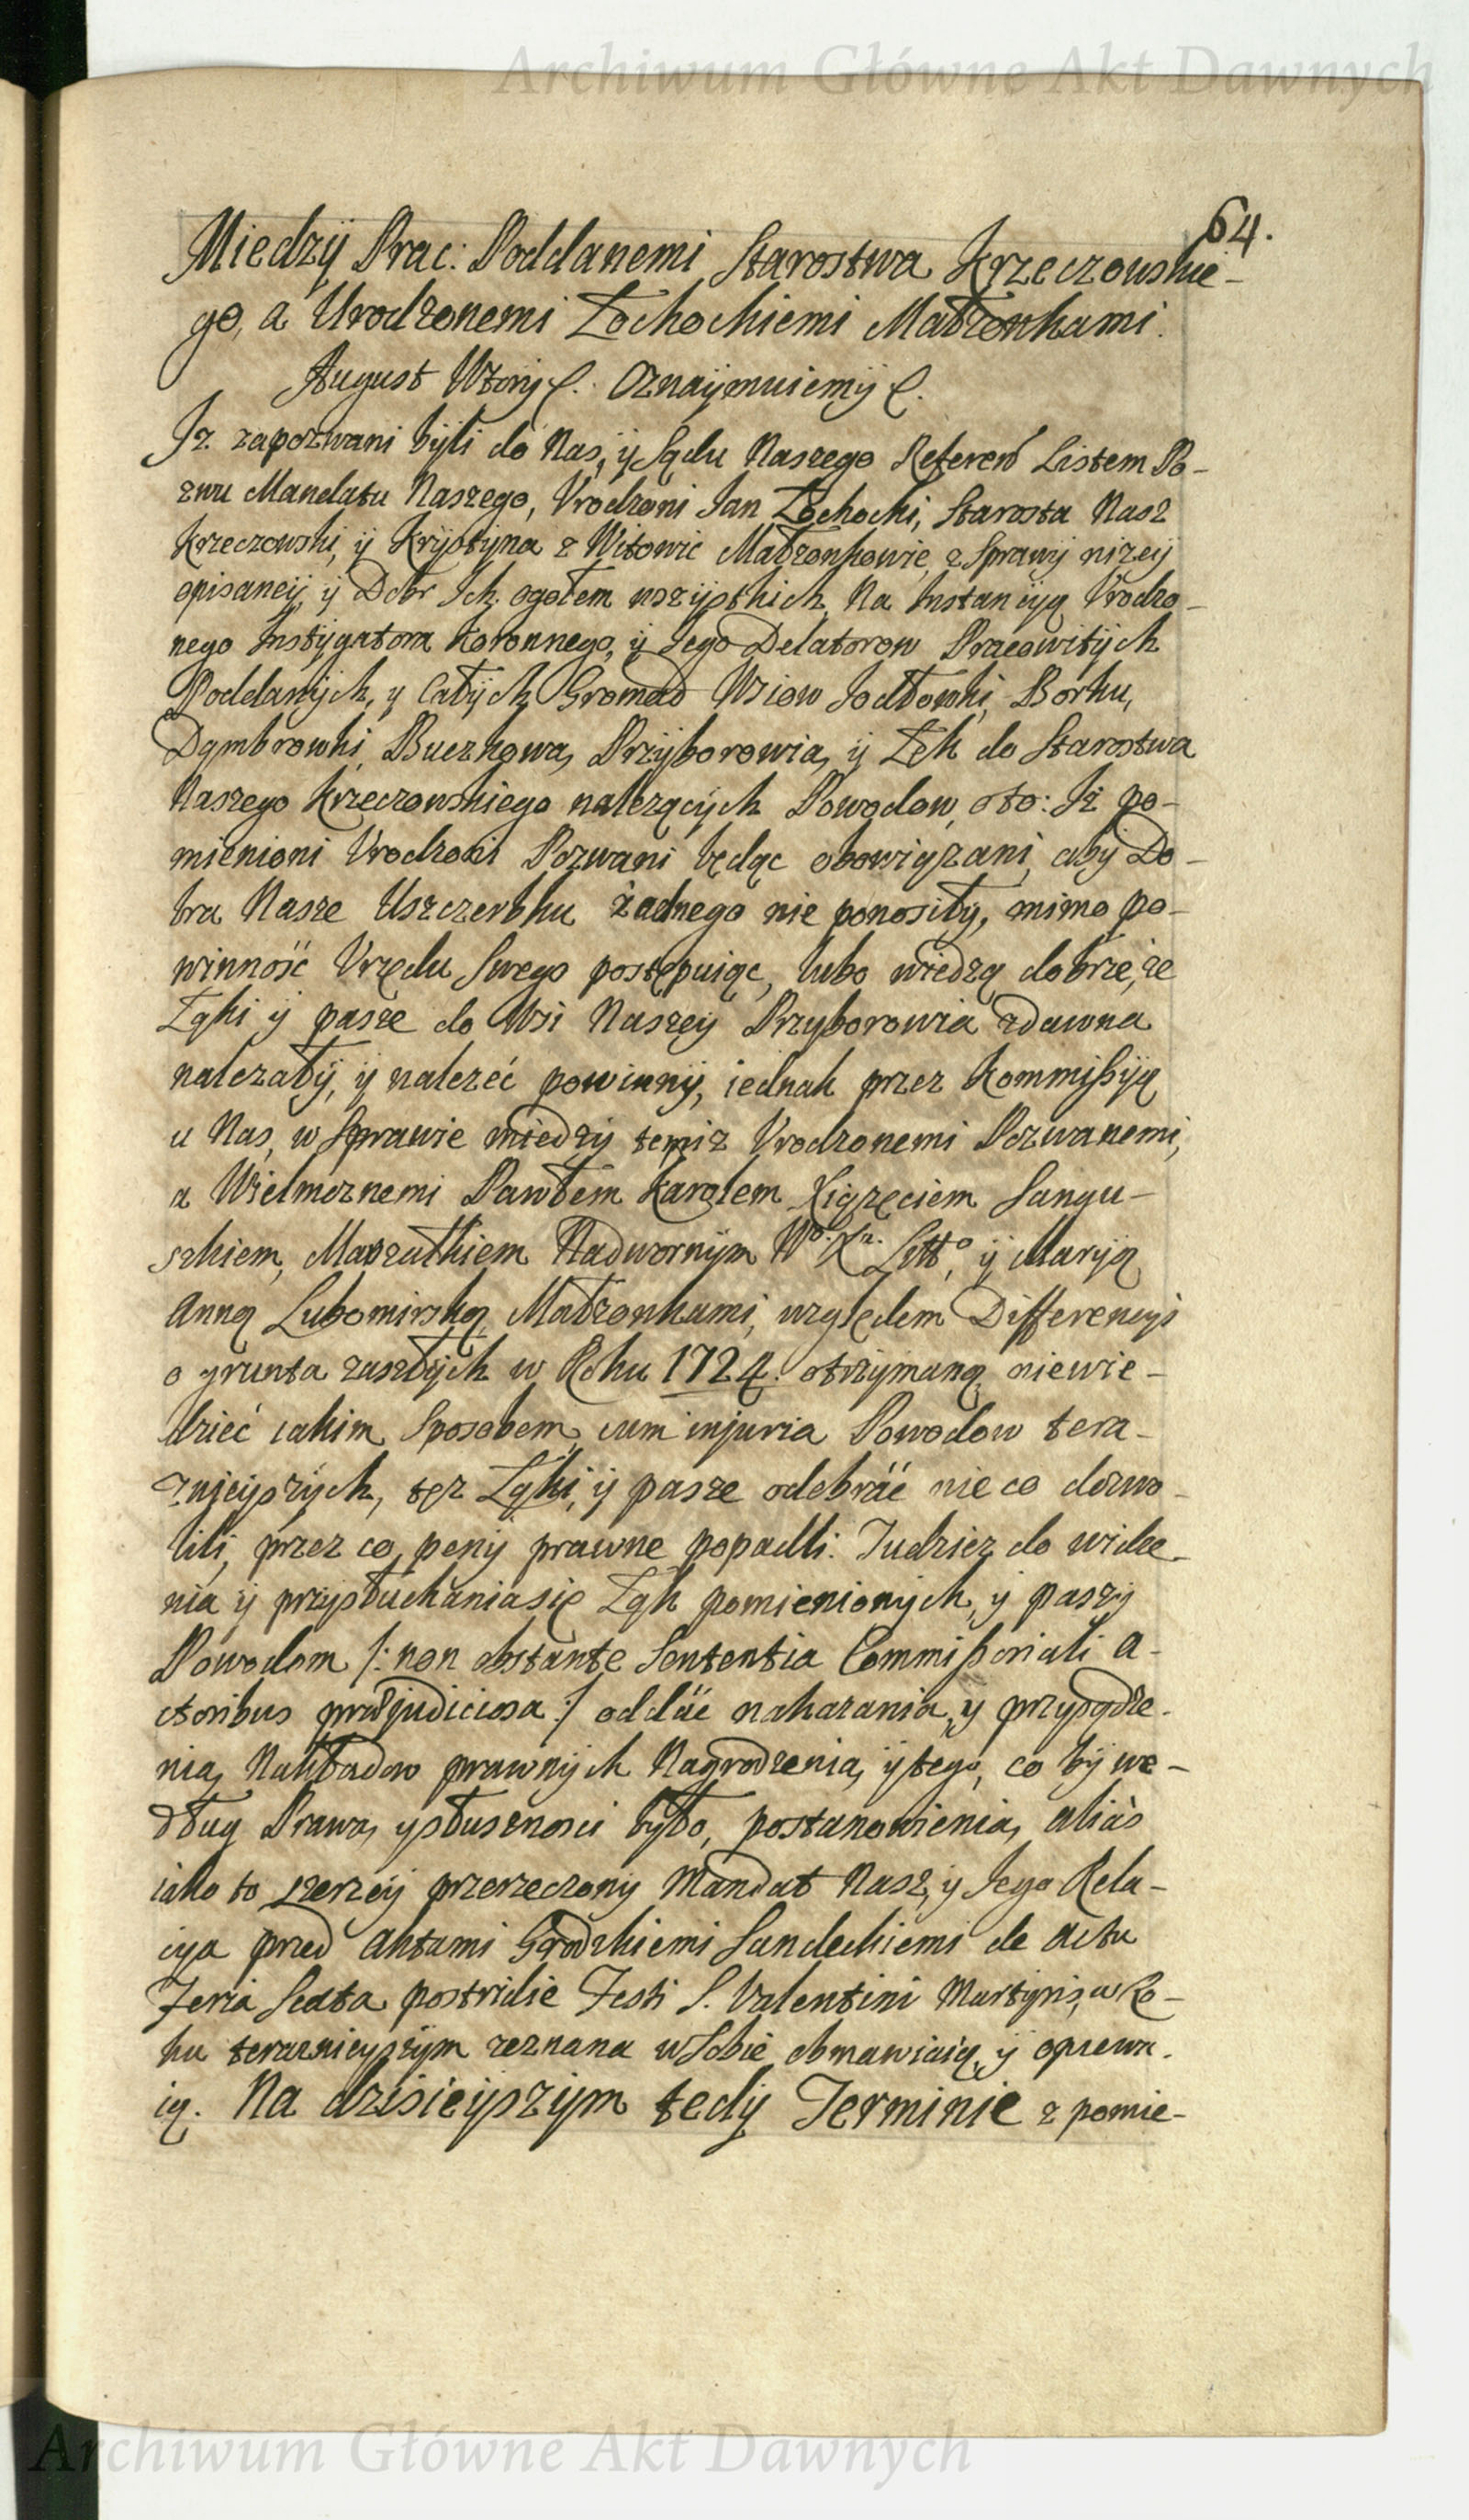 Archiwum Główne Akt Dawnych
64.
Miedzÿ Prac: Poddanemi Starostwa Krzeczowskie-
go, a Urodzonemi Łochockiemi Małżonkami.
August Wtorÿ &. Oznaÿmuiemÿ &.
Iż zapozwani bÿli do Nas, ÿ Sądu Naszego Referen̄ Listem Po-
zwu Mandatu Naszego, Vrodzoni Jan Łochocki, Starosta Nasz
Krzeczowski, ÿ Krÿstÿna z Witowic Małzonkowie, z Sprawÿ nizeÿ
opisaneÿ, ÿ Dobr Ich ogołem wszÿstkich, Na Instancÿą Vrodzo-
nego Instÿgatora Koronnego, ÿ Jego Delatorow Pracowitÿch
Poddanÿch, y Całÿch Gromad Wsiow Jodłowki, Borku,
Dąmbrowki, Buczkowa, Przÿborowia, ÿ Łęk do Starostwa
Naszego Krzeczowskiego nalezącÿch Powodow, oto: Iż po-
mienioni Vrodzoni Pozwani będąc obowiązani, abÿ Do-
bra Nasze Uszczerbku żadnego nie ponosiłÿ, mimo po-
winność Vrzędu Swego postępuiąc, lubo wiedzą dobrze, że
Łąki ÿ pasze do Wsi Naszeÿ Przyborowia zdawna
nalezałÿ, ÿ nalezeć powinnÿ, iednak przez Kommißÿą
u Nas, w Sprawie międzÿ temiz Vrodzonemi Pozwanemi,
a Wielmoznemi Pawłem Karolem Xiązęciem Sangu-
szkiem, Marszałkiem Nadwornÿm Wo. Xa. Litto, ÿ Marÿą
Anną Lubomirską Małzonkami, względem Differencÿi
o grunta zaszłÿch w Roku 1724. otrzÿmaną, niewie-
dzieć iakim Sposobem, cum injuria Powodow tera-
znieÿszÿch, tęz Łąki, ÿ pasze odebrać nie co dozwo-
lili, przez co, penÿ prawne popadli. Tudziez do widze-
nia ÿ przÿsłuchania się Łąk pomienionÿch, ÿ paszÿ
Powodom /: non obstante Sententia Commißoriali a-
ctoribus præjudiciosa :/ oddać nakazania, y przysądze-
nia, Nakładow prawnÿch Nagrodzenia, ÿ tego, co bÿ we-
dług Prawa, y słusznosci bÿło, postanowienia, aliàs
iako to szerzeÿ przerzeczonÿ Mandat Nasz, ÿ Jego Rela-
cÿa przed Aktami Grodzkiemi Sandeckiemi de Actu
Feria Sexta postridie Festi S. Valentini Martÿris, w Ro-
ku teraznieÿszÿm zeznana w Sobie obmawiaią, ÿ opiewa-
ią. Na dzisieÿszÿm tedÿ Terminie z pomie-
Archiwum Główne Akt Dawnych